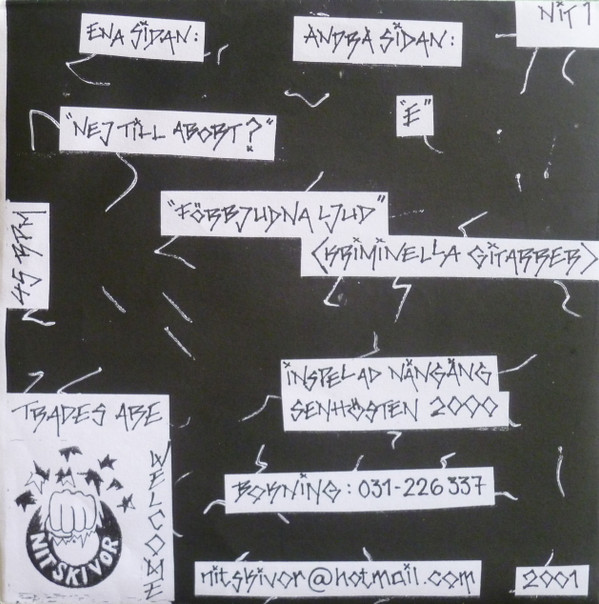 NIT 1
ENA SIDAN:
ANDRA SIDAN:
"NEJ TILL ABORT?"
"E"
"FÖRBJUDNA LJUD"
(KRIMINELLA GITARRER)
45 RPM
INSPELAD NÅNGÅNG
SENHÖSTEN 2000
TRADES ARE
WELCOME
NIT SKIVOR
BOKNING: 031-226337
nitskivor@hotmail.com
2001